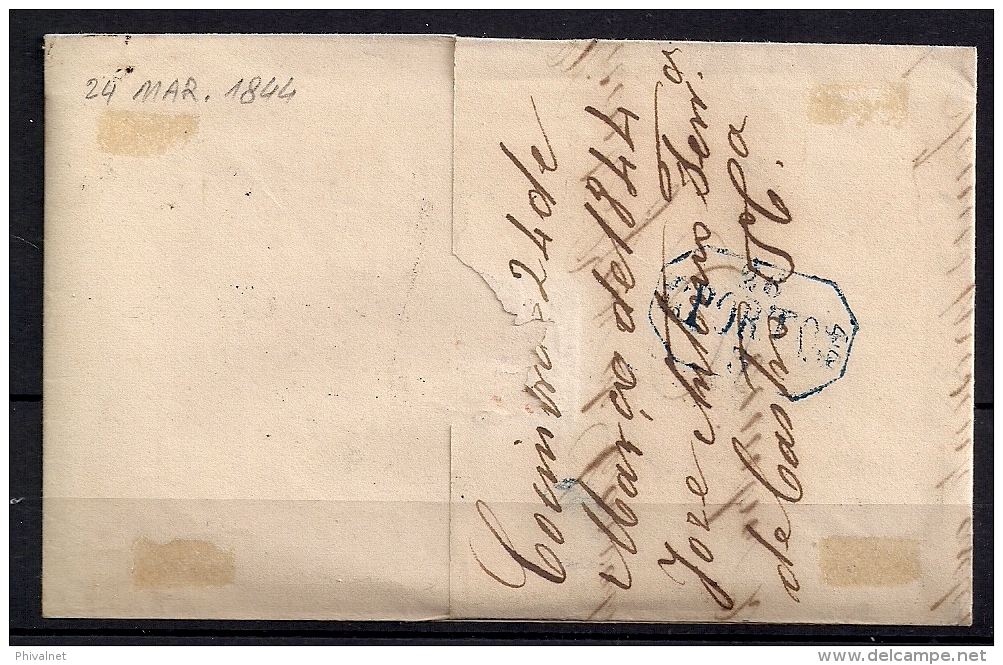 24 MAR. 1844
Coimbra 24 de
Março de 1844
Joze Antonio Ferr.ª
de Castro
PORTO
Phivalnet
www.delcampe.net